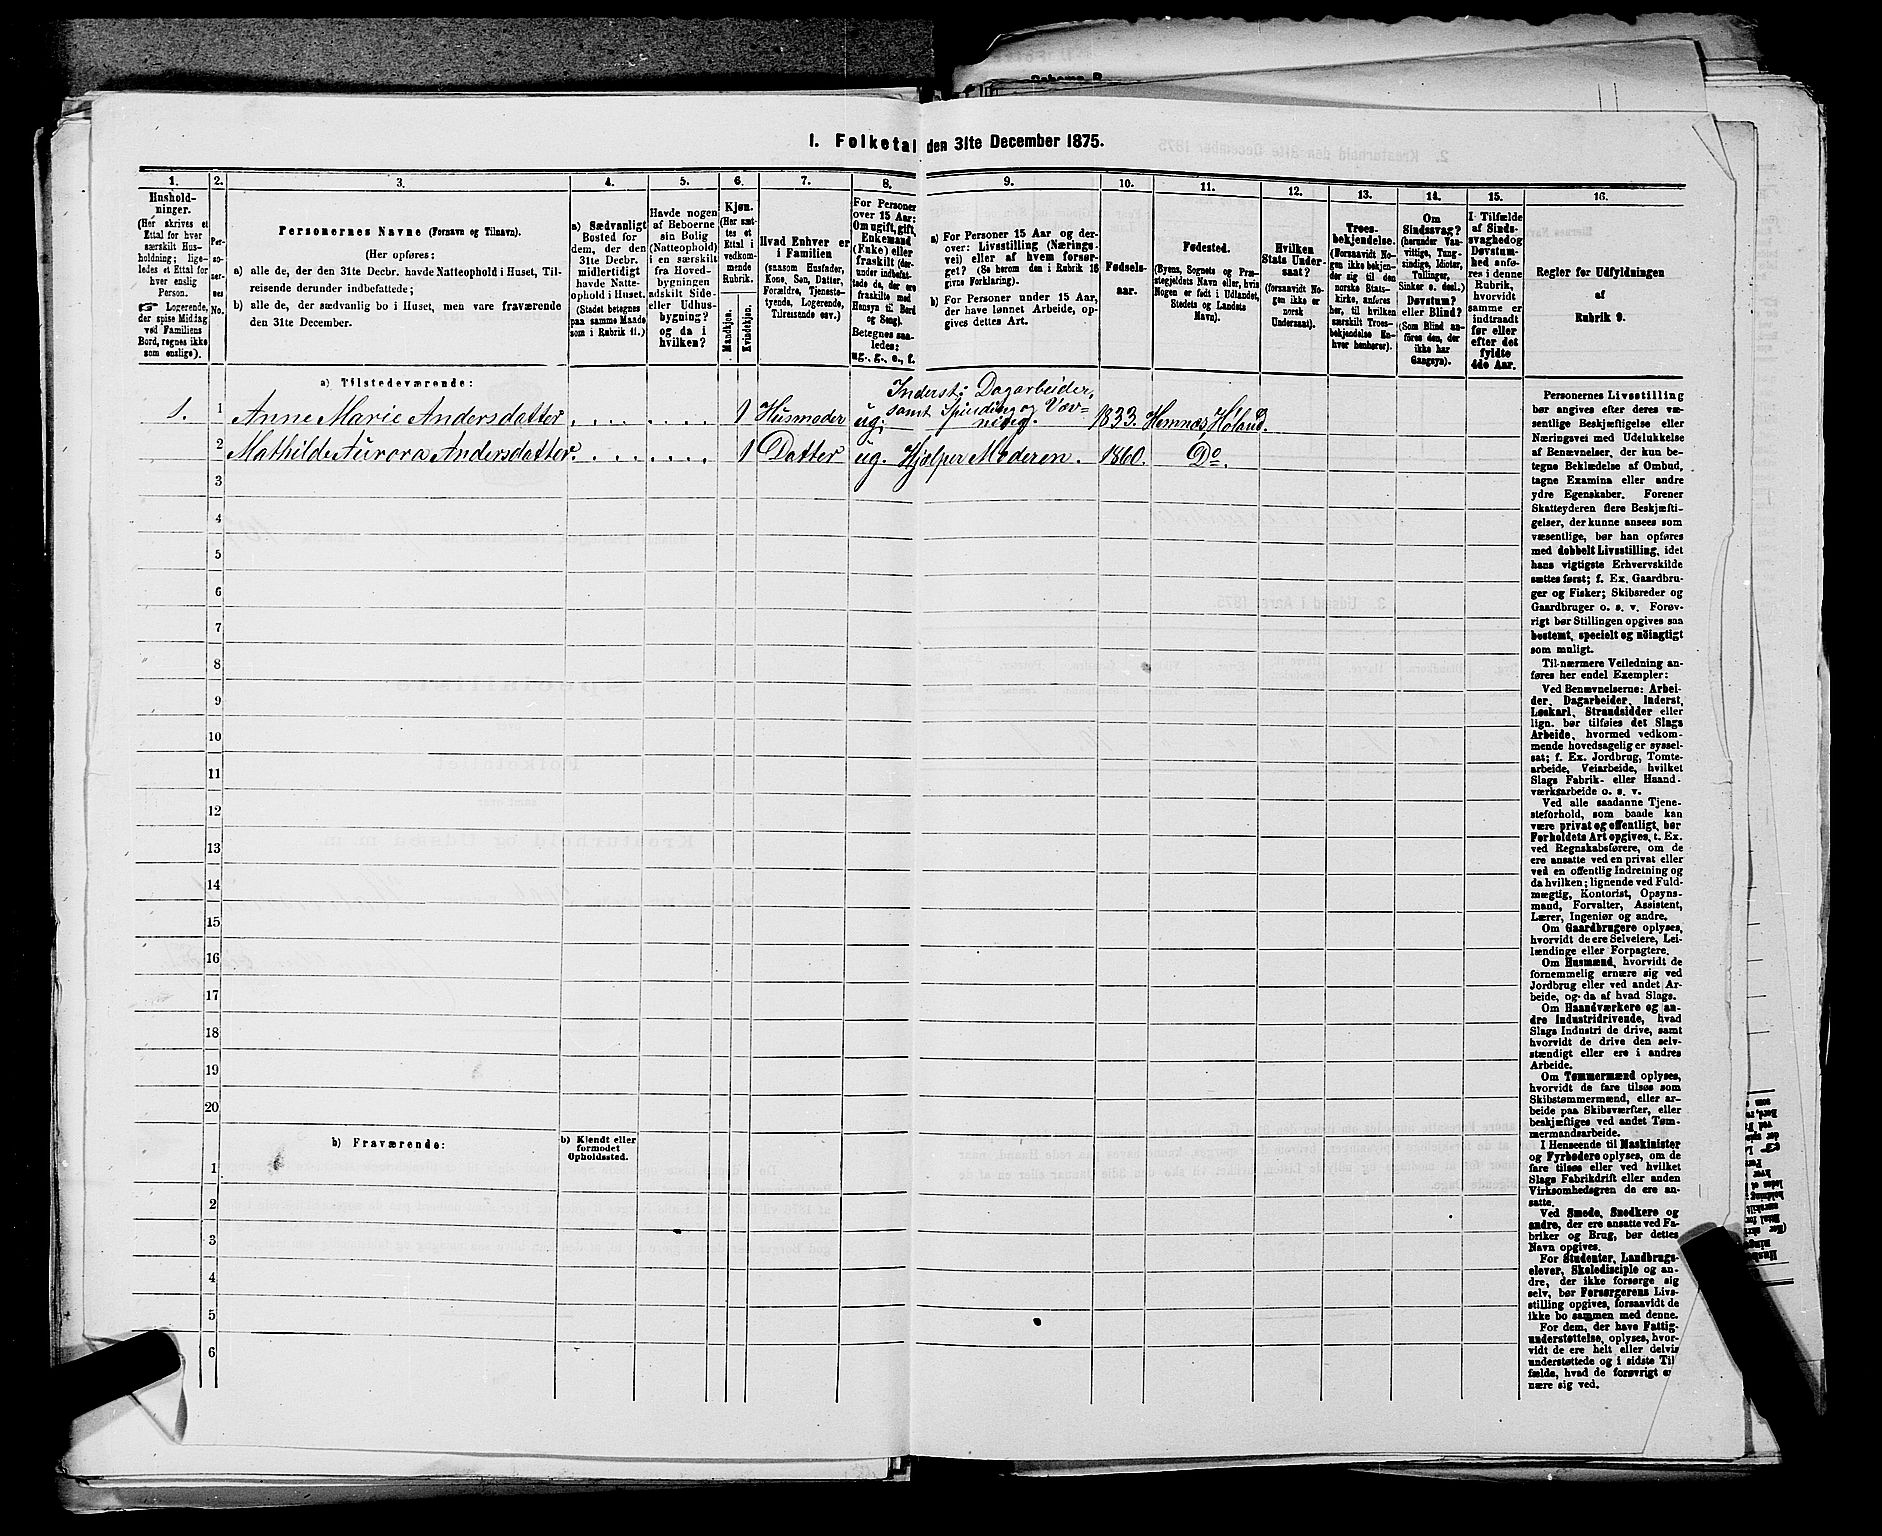 I. Folketal den 31te December 1875.
1. 2. 3. 4. 5. 6. 7. 8. 9. 10. 11. 12. 13. 14. 15. 16.
Hushold-
ninger.
(Her skrives et
Ettal for hver
særskilt Hus-
holdning; lige-
ledes et Ettal for
hver enslig
Person.
Logerende,
der spise Middag
ved Familiens
Bord, regnes ikke
som enslige).
Per-
so-
ner-
nes
No.
Personernes Navne (Fornavn og Tilnavn).
(Her opføres:
a) alle de, der den 31te Decbr. havde Natteophold i Huset, Til-
reisende derunder indbefattede;
b) alle de, der sædvanlig bo i Huset, men vare fraværende
den 31te December.
a) Sædvanligt
Bosted for
dem, der den
31te Decbr.
midlertidigt
havde Natte-
ophold i Huset.
(Stedet betegnes
paa samme Maade
som i Rubrik 11.)
Havde nogen
af Beboerne
sin Bolig
(Natteophold)
i en særskilt
fra Hoved-
bygningen
adskilt Side-
eller Udhus-
bygning?
og da i
hvilken?
Kjøn.
(Her sæt-
tes et
Ettal i
vedkom-
mende
Rubrik.
Mandkjøn.
Kvindekjøn.
Hvad Enhver er
i Familien
(saasom Husfader,
Kone, Søn, Datter,
Forældre, Tjeneste-
tyende, Logerende,
Tilreisende osv.)
For Personer
over 15 Aar:
Om ugift, gift,
Enkemand
(Enke) eller
fraskilt (der-
under indbefat-
tede de, der ere
fraskilte med
Hensyn til Bord
og Seng).
Betegnes saa-
ledes:
ug., g., e., f.
a) For Personer 15 Aar og der-
over: Livsstilling (Nærings-
vei) eller af hvem forsør-
get? (Se herom den i Rubrik 16
givne Forklaring).
b) For Personer under 15 Aar,
der have lønnet Arbeide, op-
gives dettes Art.
Fødsels-
aar.
Fødested.
(Byens, Sognets og Præ-
stegjeldets Navn eller, hvis
Nogen er født i Udlandet,
Stedets og Landets
Navn).
Hvilken
Stats Under-
saat?
(forsaavidt No-
gen ikke er
norsk
Undersaat).
Troes-
bekjendelse.
(Forsaavidt No-
gen ikke bekjen-
der sig til den
norske Stats-
kirke, anføres
her, til hvilken
særskilt Troes-
bekjendelse En-
hver henhører).
Om
Sindssvag?
(herunder Van-
vittige, Tung-
sindige, Idioter,
Tullinger,
Sinker o. desl.)
Døvstum?
eller Blind?
(Som Blind an-
føres den, der
ikke har
Gangsyn).
I Tilfælde
af Sinds-
svaghed og
Døvstum-
hed anfø-
res i denne
Rubrik,
hvorvidt
samme er
indtraadt
før eller
efter det
fyldte
4de Aar.
Regler for Udfyldningen
af
Rubrik 9.
a) Tilstedeværende:
1. 1 Anne Marie Andersdatter 1 Husmoder ug. Inderst: Dagarbeider, samt Spinding og Væv-ning. 1833. Hemnes, Høland.
2 Mathilde Aurora Andersdatter. 1 Datter ug. Hjælper Moderen. 1860. Do.
3
4
5
6
7
8
9
10
11
12
13
14
15
16
17
18
19
20
b) Fraværende:
b) Kjendt eller
formodet
Opholdssted.
1
2
3
4
5
6
Personernes Livsstilling
bør angives efter deres væ-
sentlige Beskjæftigelse eller
Næringsvei med Udelukkelse
af Benævnelser, der kun be-
tegne Beklædelse af Ombud,
tagne Examina eller andre
ydre Egenskaber. Forener
Skatteyderen flere Beskjæfti-
gelser, der kunne ansees som
væsentlige, bør han opføres
med dobbelt Livsstilling, idet
hans vigtigste Erhvervskilde
sættes først; f. Ex. Gaardbru-
ger og Fisker; Skibsreder og
Gaardbruger o. s. v. Forøv-
rigt bør Stillingen opgives saa
bestemt, specielt og nöiagtigt
som muligt.
Til nærmere Veiledning an-
føres her endel Exempler:
Ved Benævnelserne: Arbei-
der, Dagarbeider, Inderst,
Løskarl, Strandsidder eller
lign. bør tilføies det Slags
Arbeide, hvormed vedkom-
mende hovedsagelig er syssel-
sat; f. Ex. Jordbrug, Tomte-
arbeide, Veiarbeide, hvilket
Slags Fabrik- eller Haand-
værksarbeide o. s. v.
Ved alle saadanne Tjene-
steforhold, som baade kan
være privat og offentligt, bør
Forholdets Art opgives, t. Ex.
ved Regnskabsførere, om de
ere ansatte ved en privat eller
ved en offentlig Indretning og
da hvilken; lignende ved Fuld-
mægtig, Kontorist, Opsyns-
mand, Forvalter, Assistent,
Lærer, Ingeniør og andre.
Om Gaardbrugere oplyses,
hvorvidt de ere Selveiere, Lei-
lændinge eller Forpagtere.
Om Husmænd, hvorvidt de
fornemmelig ernære sig ved
Jordbrug eller ved andet Ar-
beide, og da af hvad Slags.
Om Haandværkere og an-
dre Industridrivende, hvad
Slags Industri de drive, samt
hvorvidt de drive den selv-
stændigt eller ere i andres
Arbeide.
Om Tømmermænd oplyses,
hvorvidt de fare tilsøs som
Skibstømmermænd, eller ar-
beide paa Skibsværfter, eller
beskjæftiges ved andet Tøm-
mermandsarbeide.
I Henseende til Maskinister
og Fyrbødere oplyses, om de
fare tilsøs eller ved hvilket
Slags Fabrikdrift eller anden
Virksomhedsgren de ere an-
satte.
Ved Smede, Snedkere og
andre, der ere ansatte ved Fa-
briker og Brug, bør dettes
Navn opgives.
For Studenter, Landbrugs-
elever, Skoledisciple og an-
dre, der ikke forsørge sig
selv, bør Forsørgerens Livs-
stilling opgives, forsaavidt de
ikke bo sammen med denne.
For dem, der have Fattig-
understøttelse, oplyses, hvor-
vidt de ere helt eller delvis
understøttede og i sidste Til-
fælde, hvad de forøvrigt er-
nære sig ved.